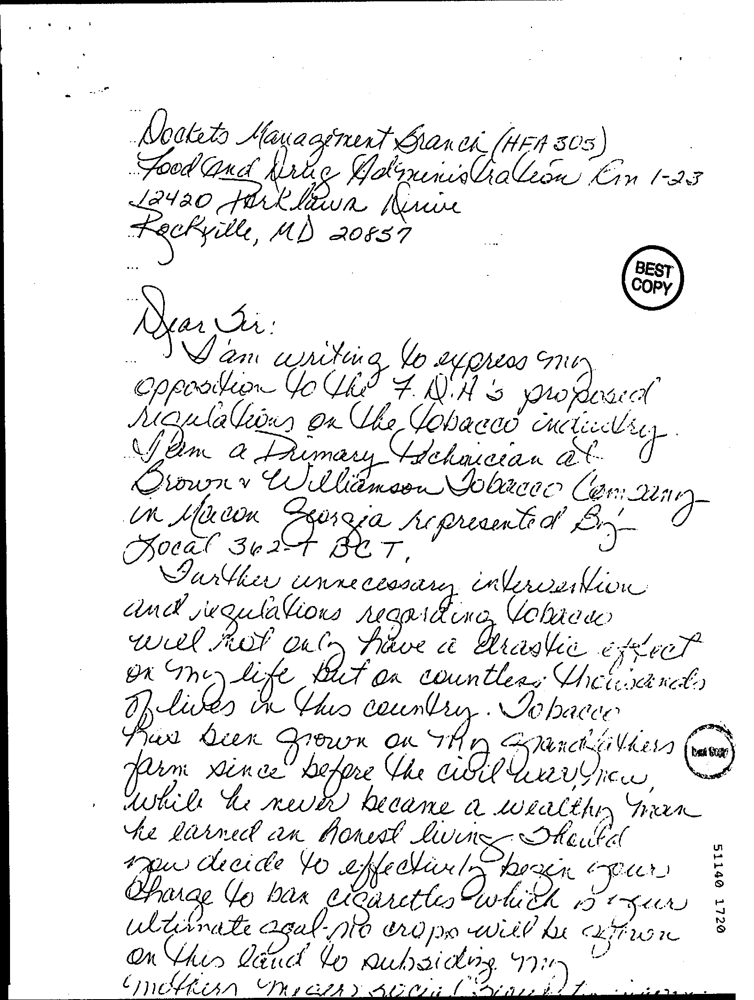 Dockets Management Branch (HFA 305)
Food and Drug Administration Rm 1-23
12420 Parklawn Drive
Rockville, MD 20857
BEST
COPY
Dear Sir:
I am writing to express my
opposition to the F.D.A's proposed
regulations on the tobacco industry.
I am a Primary Technician at
Brown & Williamson Tobacco Company
in Macon Georgia represented By
Local 362-T BCT.
Further unnecessary intervention
and regulations regarding tobacco
will not only have a drastic effect
on my life but on countless thousands
of lives in this country. Tobacco
has been grown on my grandfathers
farm since before the civil war, now,
while he never became a wealthy man
he earned an honest living. Should
you decide to effectively begin your
charge to ban cigarettes which is your
ultimate goal - no crops will be grown
on this land to subsidize my
mothers meager social
51140 1720